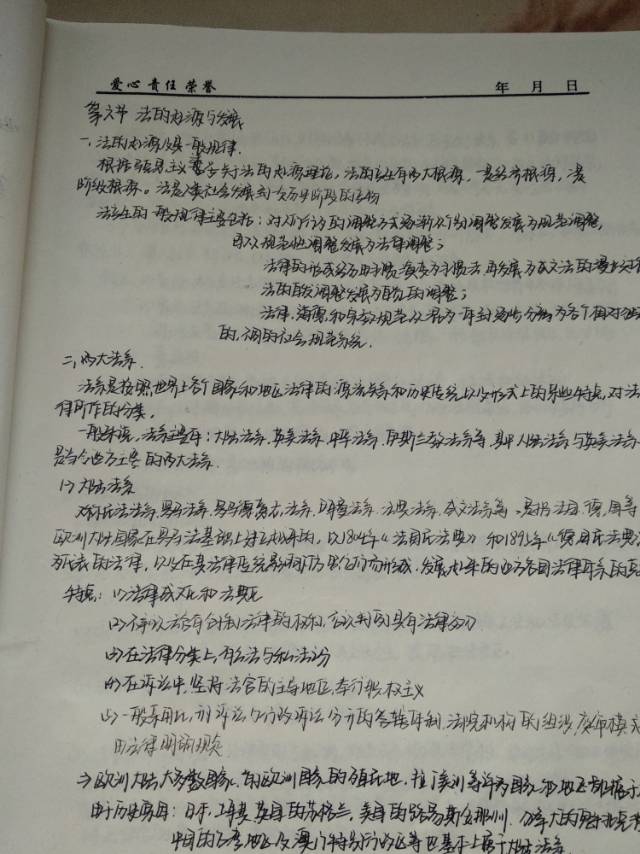 爱心 责任 荣誉
年 月 日
第六节 法的起源与发展
一、法的起源及其一般规律
根据马克思主义 关于法的起源理论,法的产生有两大根源,一是经济根源,二是
阶级根源。法是人类社会发展到一定历史阶段的产物
法产生的一般规律主要包括:对人们行为的调整方式逐渐从个别调整发展为规范调整,
再从规范性调整发展为法律调整;
法律的形成经历由习惯演变为习惯法再发展为成文法的漫长过程
法的自发调整发展为自觉的调整;
法律、道德和宗教规范从混为一体到逐渐分离为各个相对独立
的,不同的社会规范系统.
二、两大法系
法系是按照世界上各个国家和地区法律的源流关系和历史传统以及形式上的某些特点,对法
律所作的分类。
一般来说,法系主要有:大陆法系、英美法系、中华法系、伊斯兰教法系等,其中大陆法系与英美法系
是当今世界主要的两大法系.
(一) 大陆法系
又称民法法系、罗马法系、罗马德意志法系、 法系、法典法系、成文法系等,是指法国、德国等
欧洲大陆国家在罗马法基础上建立起来的,以1804年《法国民法典》和1896年《德国民法典》
为代表的法律,以及在其法律传统影响下 仿而形成、发展起来的西方各国法律体系的
特点:(1)法律成文和法典化
(2)不承认法官有创制法律的权利,否认判例具有法律效力
(3)在法律分类上,有公法与私法之分
(4)在诉讼中,坚持法官的主导地位,奉行职权主义
(5)一般采用民、刑诉讼与行政诉讼分开的各种体制,法院机构的组织、
法律明确规定
欧洲大陆大多数国家、前欧洲国家的殖民地、拉丁美洲等许多国家和地区都属于
由于历史原因:日本、土耳其、英国的苏格兰、美国的路易斯安那州、加拿大的魁北克省
中国的台湾地区及澳门特别行政区等也基本上属于大陆法系.